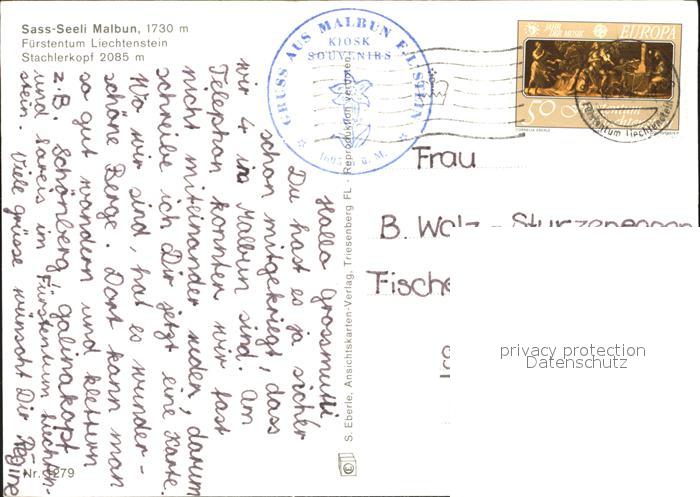 Sass-Seeli Malbun, 1730 m
Fürstentum Liechtenstein
Stachlerkopf 2085 m
GRUSS AUS MALBUN F.LSTEIN
KIOSK
SOUVENIRS
JAHR DER MUSIK
EUROPA
50
CORNELIA EBERLE
Hallo Grossmutti
Du hast es ja sicher
schon mitgekriegt, dass
wir 4 in Malbun sind. Am
Telephon konnten wir fast
nicht miteinander reden, darum
schreibe ich Dir jetzt eine Karte.
Wo wir sind, hat es wunder-
schöne Berge. Dort kann man
so gut wandern und klettern
z.B. Schönberg, Galinakopf
und soweis in Fürstentum Liechten-
stein. Viele grüsse wünscht Dir Regine
S. Eberle, Ansichtskarten-Verlag, Triesenberg FL - Reproduktion verboten
Frau
B. Walz - Sturzenegger
Fische
Nr. 1279
privacy protection
Datenschutz